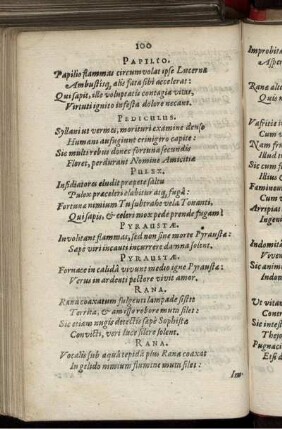 100
PAPILIO.
Papilio flammas circumvolat ipse Lucernæ
Ambustisq, alis fata sibi accelerat:
Qui sapit, ille voluptatis contagia vitet,
Virtuti ignito infesta dolore necant.
PEDICULUS.
Syllani ut vermes, morituri examine denso
Humani aufugiunt crinigero capite:
Sic multi rebus donec fortuna secundis
Floret, perdurant Nomine Amicitiæ
PULEX.
Insidiatores eludit propete saltu
Pulex præceleri elabitur atq, fugâ:
Fortuna nimium Tu subtrahe vela Tonanti,
Qui sapis, & celeri mox pede prende fugam!
PYRAUSTÆ.
Involitant flammas, sed non sine morte Pyrausta:
Sæpè viri incauti incurrere damna solent.
PYRAUSTÆ.
Fornace in calidâ vivunt medio igne Pyrausta:
Verus in ardenti pectore vivit amor.
RANA.
Rana coaxatum fulgenti lampade sistit
Territa, & amisso robore muta silet:
Sic etiam nugis detectis sæpè Sophista
Convicti, veri luce silere solent.
RANA.
Vocalis sub aquâ tepidâ pini Rana coaxat
In gelido nimium flumine muta silet:
Improbita
Asper
Rana alte
Quod n
Vafritie i
Cum v
Nam fr
Illud t
Sic cum
Illud
Famineu
Cum v
Arrepiat
In gen
Indomit
Devor
Sic anim
Indom
Ut vitat
Contr
Sic inte
Tbesp
Pugnaci
Etsi d